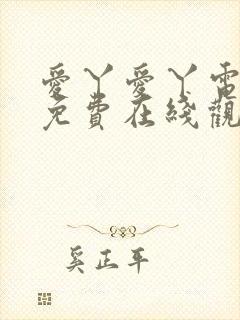 愛丫愛丫電
免費在綫觀
奚正平